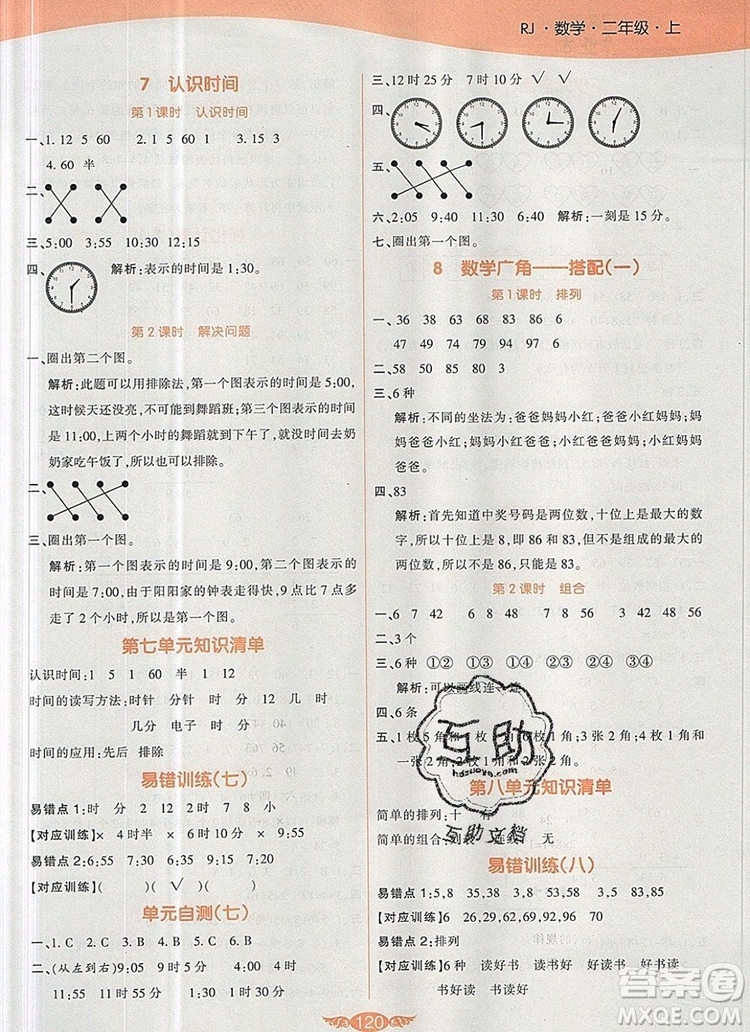 RJ·数学·二年级·上
7 认识时间
第1课时 认识时间
一、1. 12 5 60 2. 1 5 1 3. 15 3
4. 60 半
二、
三、5:00 3:55 10:30 12:15
四、 解析:表示的时间是 1:30。
第2课时 解决问题
一、圈出第二个图。
解析:此题可以用排除法,第一个图表示的时间是 5:00,
这时候天还没亮,不可能去舞蹈班;第三个图表示的时间
是 11:00,上两个小时的舞蹈就到下午了,所以没时间去奶
奶家吃午饭了,所以也可以排除。
二、
三、圈出第一个图。
解析:第一个图表示的时间是 9:00,第二个图表示的时间
是 7:00,由于阳阳家的钟表走得快,8:00 到 9:00 多
走了 2 小时,所以是第一个图。
第七单元知识清单
认识时间:1 5 1 60 半 1 12
时间的读写方法:时针 分针 时 分 12 几 时
几分 电子 时 分
时间的应用:先后 排除
易错训练(七)
易错点 1:时 分 2 12 7 8 小
【对应训练】× 4时半 × 6:10 × 9:55
易错点 2:6:55 8:55 11:55
【对应训练】( )(√)( )
单元自测(七)
一、1. C 2. C 3. B 4. C
二、(从左到右)7:35 9:30 4:00 6:50
11:55 11:05 1:25 8:15
三、12时25分 7时10分 √ √
四、
五、
六、2:05 9:40 11:35 6:05 解析:一刻是 15 分。
七、圈出第一个图。
8 数学广角——搭配(一)
第1课时 排列
一、36 38 63 68 83 86
47 49 74 79 94 97
二、50 58 80 85
三、6种
解析:不同的坐法为:爸爸妈妈小红;爸爸小红妈妈;妈
妈爸爸小红;妈妈小红爸爸;小红爸爸妈妈;小红妈妈
爸爸。
四、83
解析:首先知道中奖号码是两位数,十位上是最大的数
字,所以十位上的数是 8,即 86 和 83,又因为不是最大的
两位数,所以不是 86,只能是 83。
第2课时 组合
一、6 7 42 6 8 48 7 8 56
二、3个
三、6种 ①② ①③ ①④ ②③ ②④ ③④
解析:可以画线连一连
四、6条
五、1枚1角和1枚5角;2枚1角和1枚;3张2角;4张2角和
一张1角;一张2角和一枚5角
第八单元知识清单
简单的排列:十 个 0
简单的组合:列表 连线 无
易错训练(八)
易错点 1:5,8 35,38 3,5 53,58 3,3 83,85
【对应训练】6 26,29,62,69,92,96 70
易错点 2:排列
【对应训练】6种 读好书 读书好 好书读 好读书
书好读 书读好
120
互助
hdzuoye.com
互助文档
答案圈
MXQE.COM